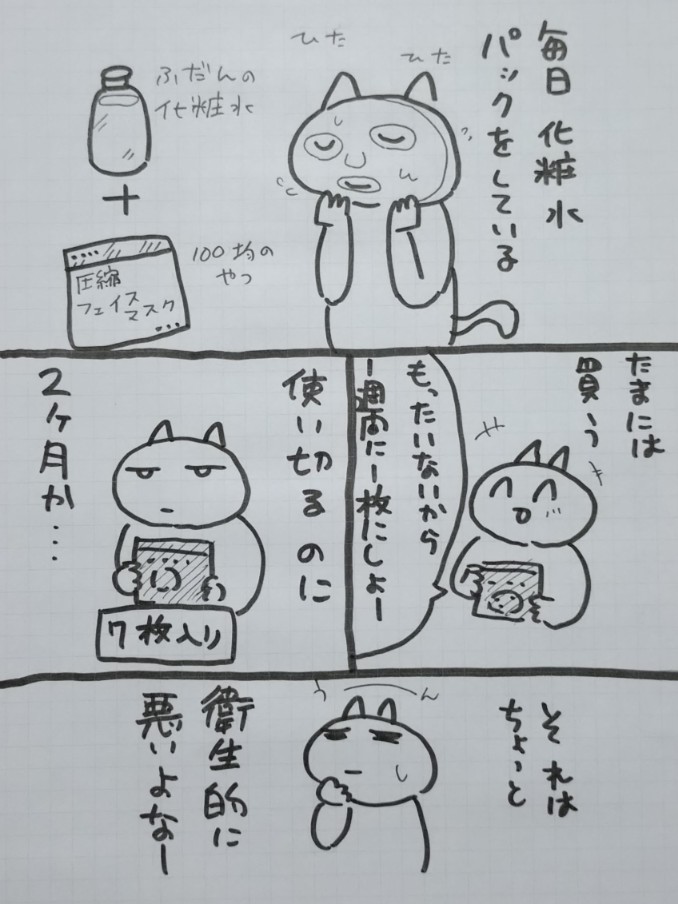 毎日 化粧水
パックをしている
ひた
ひた
ふだんの
化粧水
+
100均の
やつ
圧縮
フェイス
マスク
たまには
買う
もったいないから
一週間に一枚にしよー
使い切るのに
2ヶ月か…
7枚入り
それは
ちょっと
うーん
衛生的に
悪いよなー